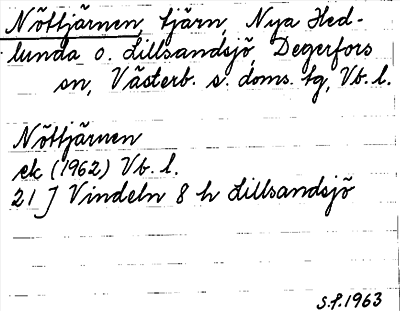 Nöttjärnen, tjärn, Nya Hed-
lunda o. Lillsandsjö, Degerfors
sn, Västerb. s. doms. tg, Vb. l.
Nöttjärnen
ek (1962) Vb. l.
21 J Vindeln 8 h Lillsandsjö
S.F. 1963